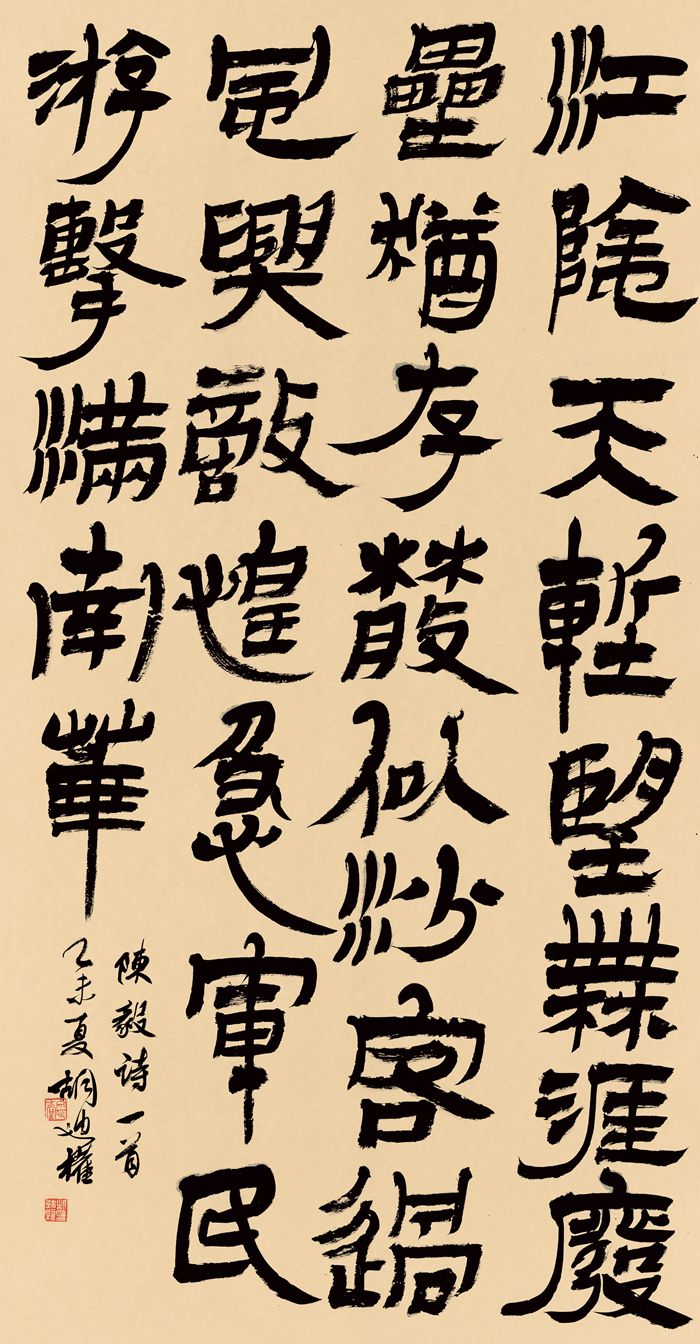 江陰天塹望無涯廢
壘猶存散似沙客過
風興敵惶急軍民
游擊滿南華
陳毅詩一首
乙未夏胡迪權